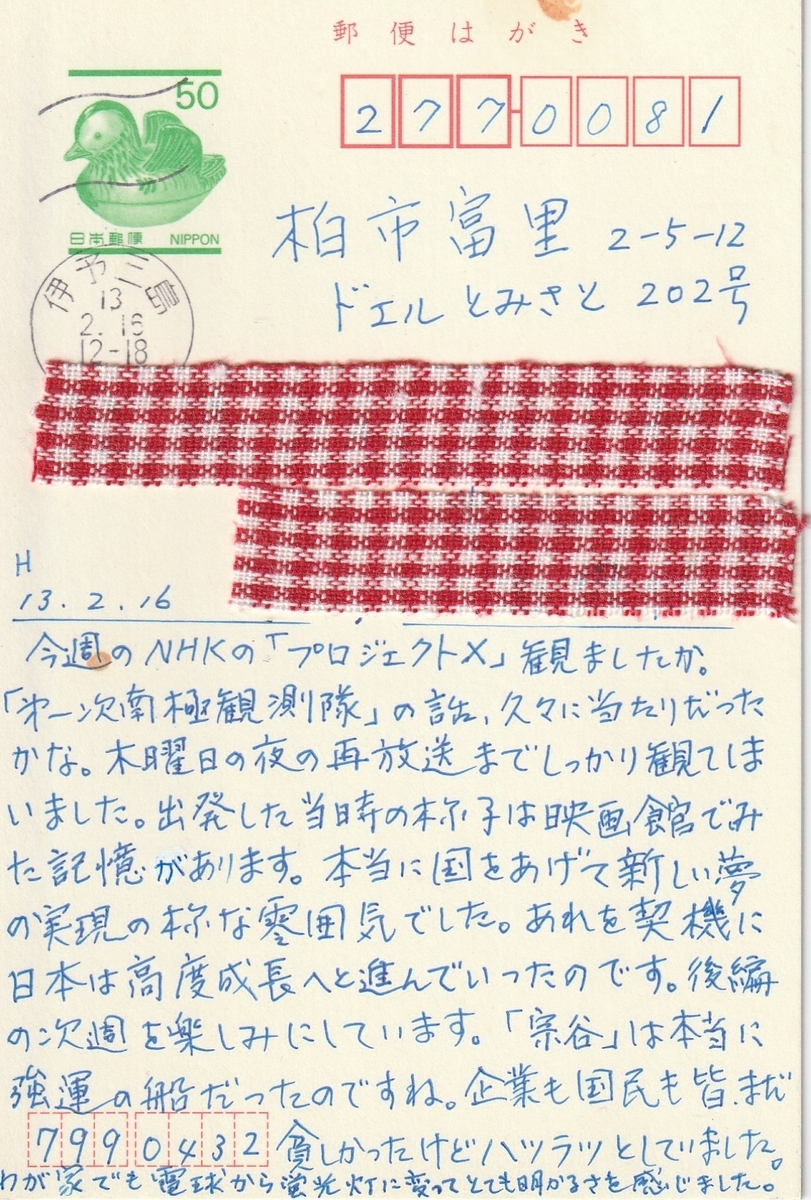 郵便はがき
50
日本郵便 NIPPON
277-0081
柏市富里 2-5-12
ドエルとみさと 202号
伊予三島
13
2.16
12-18
H
13.2.16
今週のNHKの「プロジェクトX」観ましたか。
「㐧一次南極観測隊」の話、久々に当たりだった
かな。木曜日の夜の再放送までしっかり観てしま
いました。出発した当時の様子は映画館でみ
た記憶があります。本当に国をあげて新しい夢
の実現の様な雰囲気でした。あれを契機に
日本は高度成長へと進んでいったのです。後編
の次週を楽しみにしています。「宗谷」は本当に
強運の船だったのですね。企業も国民も皆、まだ
7990432 貧しかったけどハツラツとしていました。
わが家でも電球から蛍光灯に変ってとても明かるさを感じました。